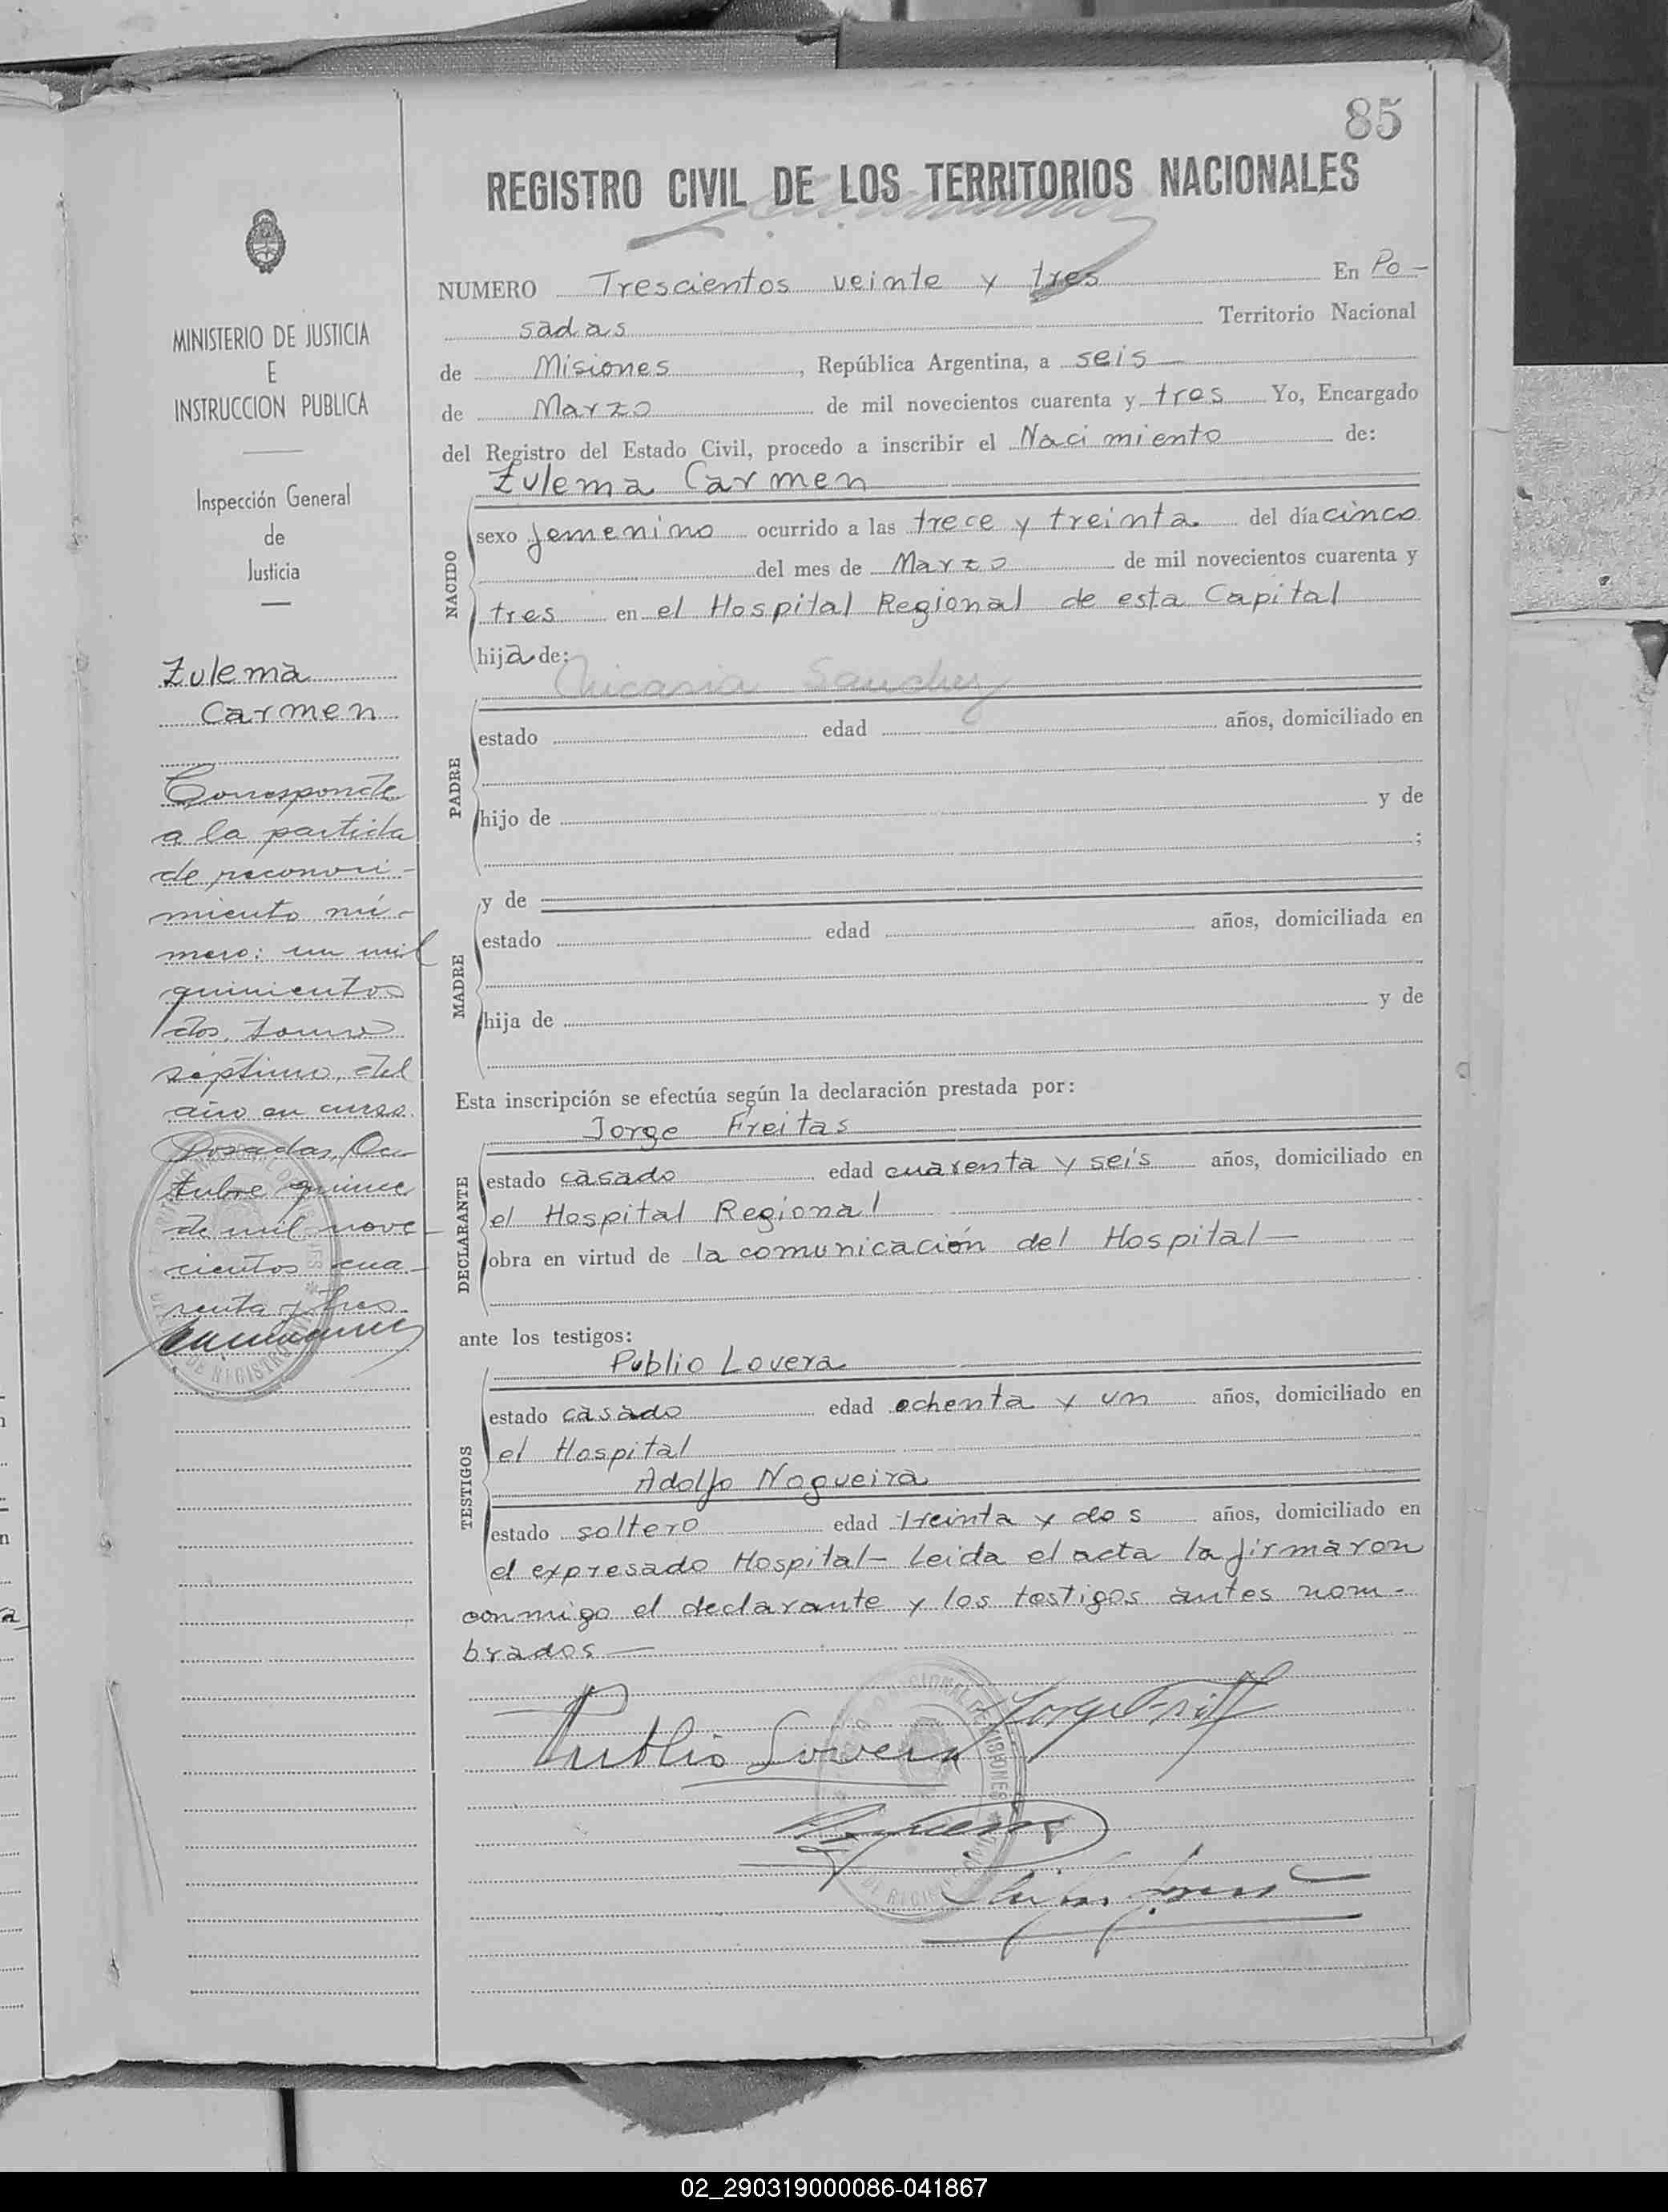 85
REGISTRO CIVIL DE LOS TERRITORIOS NACIONALES
NUMERO Trescientos veinte y tres En Po-
sadas Territorio Nacional
de Misiones, República Argentina, a seis
de Marzo de mil novecientos cuarenta y tres Yo, Encargado
del Registro del Estado Civil, procedo a inscribir el Nacimiento de:
Zulema Carmen
NACIDO
sexo femenino ocurrido a las trece y treinta del día cinco
del mes de Marzo de mil novecientos cuarenta y
tres en el Hospital Regional de esta Capital
hija de:
Sanchez
PADRE
estado edad años, domiciliado en
hijo de y de
;
y de
MADRE
estado edad años, domiciliada en
hija de y de
Esta inscripción se efectúa según la declaración prestada por:
Jorge Freitas
DECLARANTE
estado casado edad cuarenta y seis años, domiciliado en
el Hospital Regional
obra en virtud de la comunicación del Hospital-
ante los testigos:
Publio Lovera
TESTIGOS
estado casado edad ochenta y un años, domiciliado en
el Hospital
Adolfo Nogueira
estado soltero edad treinta y dos años, domiciliado en
el expresado Hospital- Leida el acta la firmaron
conmigo el declarante y los testigos antes nom-
brados-
Publio Lovera
MINISTERIO DE JUSTICIA
E
INSTRUCCION PUBLICA
Inspección General
de
Justicia
Zulema
Carmen
Corresponde
a la partida
de reconoci-
miento nú-
mero: un mil
quinientos
dos, tomo
séptimo, del
año en curso.
Posadas, Oc-
tubre quince
de mil nove-
cientos cua-
renta y tres.
02_290319000086-041867